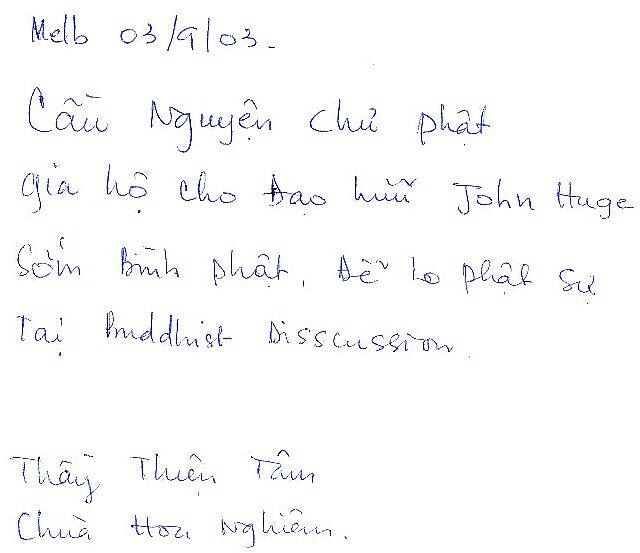 Melb 03/9/03.
Cầu Nguyện chư phật
gia hộ cho Đạo hữu John Huge
Sớm Bình phật. Để lo phật sự
Tại Buddhist Disscussion.
Thầy Thiện Tâm
Chùa Hoa Nghiêm.